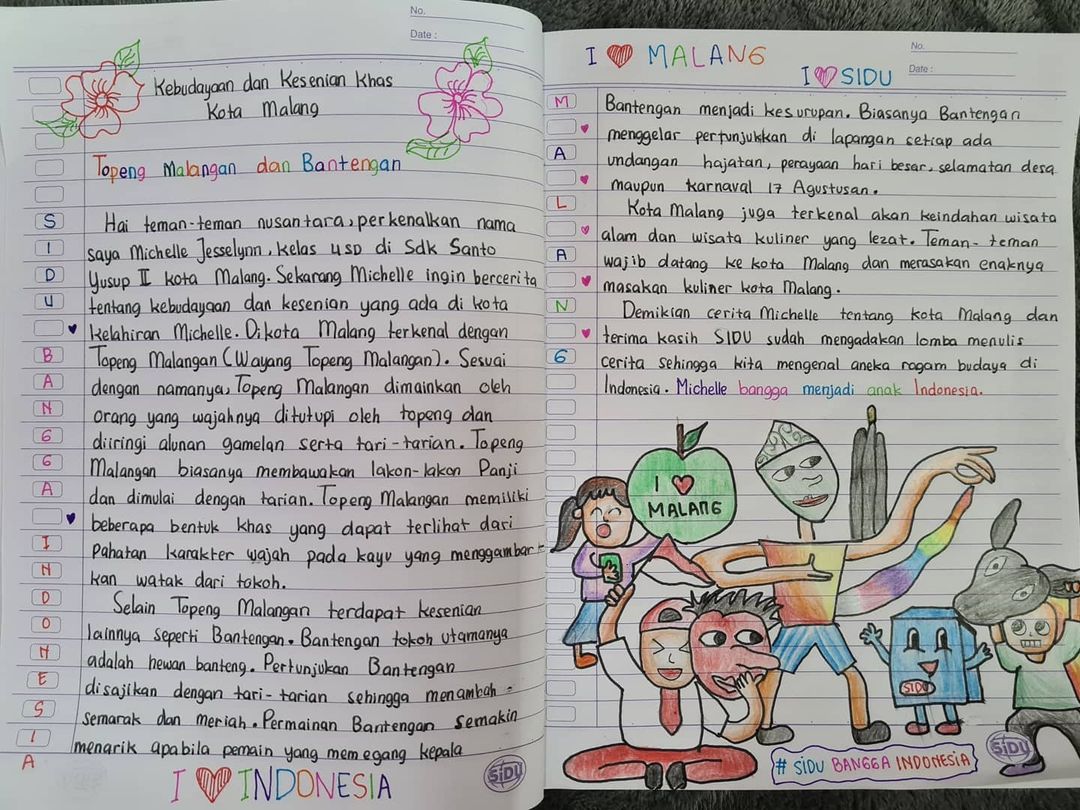 No.
Date :
Kebudayaan dan Kesenian Khas
Kota Malang
Topeng Malangan dan Bantengan
Hai teman-teman nusantara, perkenalkan nama
saya Michelle Jesselynn, kelas 4 SD di Sdk Santo
Yusup II kota Malang. Sekarang Michelle ingin bercerita
tentang kebudayaan dan kesenian yang ada di kota
kelahiran Michelle. Di kota Malang terkenal dengan
Topeng Malangan (Wayang Topeng Malangan). Sesuai
dengan namanya, Topeng Malangan dimainkan oleh
orang yang wajahnya ditutupi oleh topeng dan
diiringi alunan gamelan serta tari-tarian. Topeng
Malangan biasanya membawakan lakon-lakon Panji
dan dimulai dengan tarian. Topeng Malangan memiliki
beberapa bentuk khas yang dapat terlihat dari
Pahatan karakter wajah pada kayu yang menggambar-
kan watak dari tokoh.
Selain Topeng Malangan terdapat kesenian
lainnya seperti Bantengan. Bantengan tokoh utamanya
adalah hewan banteng. Pertunjukan Bantengan
disajikan dengan tari-tarian sehingga menambah
semarak dan meriah. Permainan Bantengan semakin
menarik apabila pemain yang memegang kepala
S
I
D
U
B
A
N
G
G
A
I
N
D
O
N
E
S
I
A
I ❤ INDONESIA
SIDU
I ❤ MALANG
I ❤ SIDU
No.
Date :
Bantengan menjadi kesurupan. Biasanya Bantengan
menggelar pertunjukkan di lapangan setiap ada
undangan hajatan, perayaan hari besar, selamatan desa
maupun karnaval 17 Agustusan.
Kota Malang juga terkenal akan keindahan wisata
alam dan wisata kuliner yang lezat. Teman-teman
wajib datang ke kota Malang dan merasakan enaknya
masakan kuliner kota Malang.
Demikian cerita Michelle tentang kota Malang dan
terima kasih SIDU sudah mengadakan lomba menulis
cerita sehingga kita mengenal aneka ragam budaya di
Indonesia. Michelle bangga menjadi anak Indonesia.
M
A
L
A
N
G
I ❤
MALANG
SIDU
# SIDU BANGGA INDONESIA
SIDU